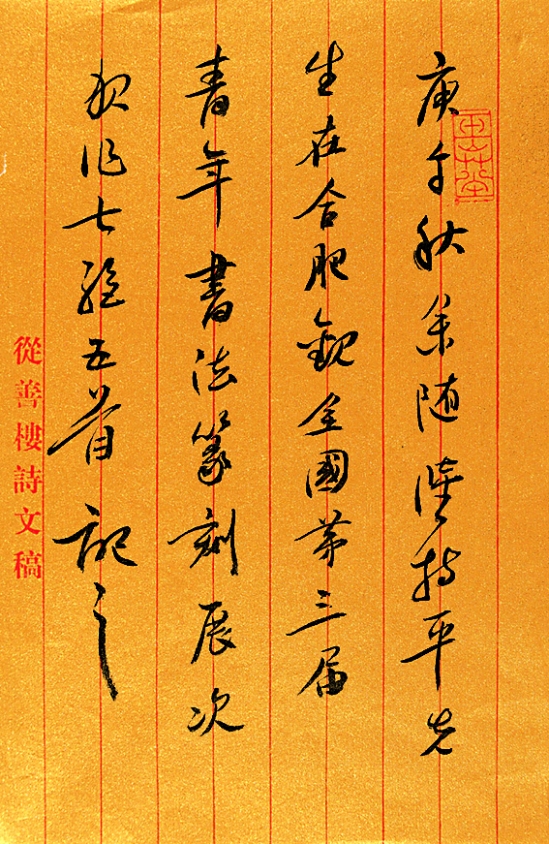 庚午秋余随潘持平先
生在合肥觀全國第三届
青年書法篆刻展次
作七絶五首記之
從善樓詩文稿